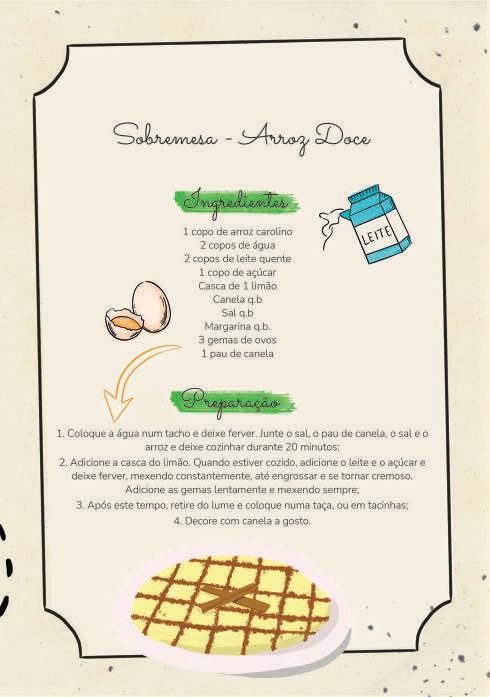 Sobremesa - Arroz Doce
Ingredientes
LEITE
1 copo de arroz carolino
2 copos de água
2 copos de leite quente
1 copo de açúcar
Casca de 1 limão
Canela q.b
Sal q.b
Margarina q.b.
3 gemas de ovos
1 pau de canela
Preparação
1. Coloque a água num tacho e deixe ferver. Junte o sal, o pau de canela, o sal e o
arroz e deixe cozinhar durante 20 minutos;
2. Adicione a casca do limão. Quando estiver cozido, adicione o leite e o açúcar e
deixe ferver, mexendo constantemente, até engrossar e se tornar cremoso.
Adicione as gemas lentamente e mexendo sempre;
3. Após este tempo, retire do lume e coloque numa taça, ou em tacinhas;
4. Decore com canela a gosto.